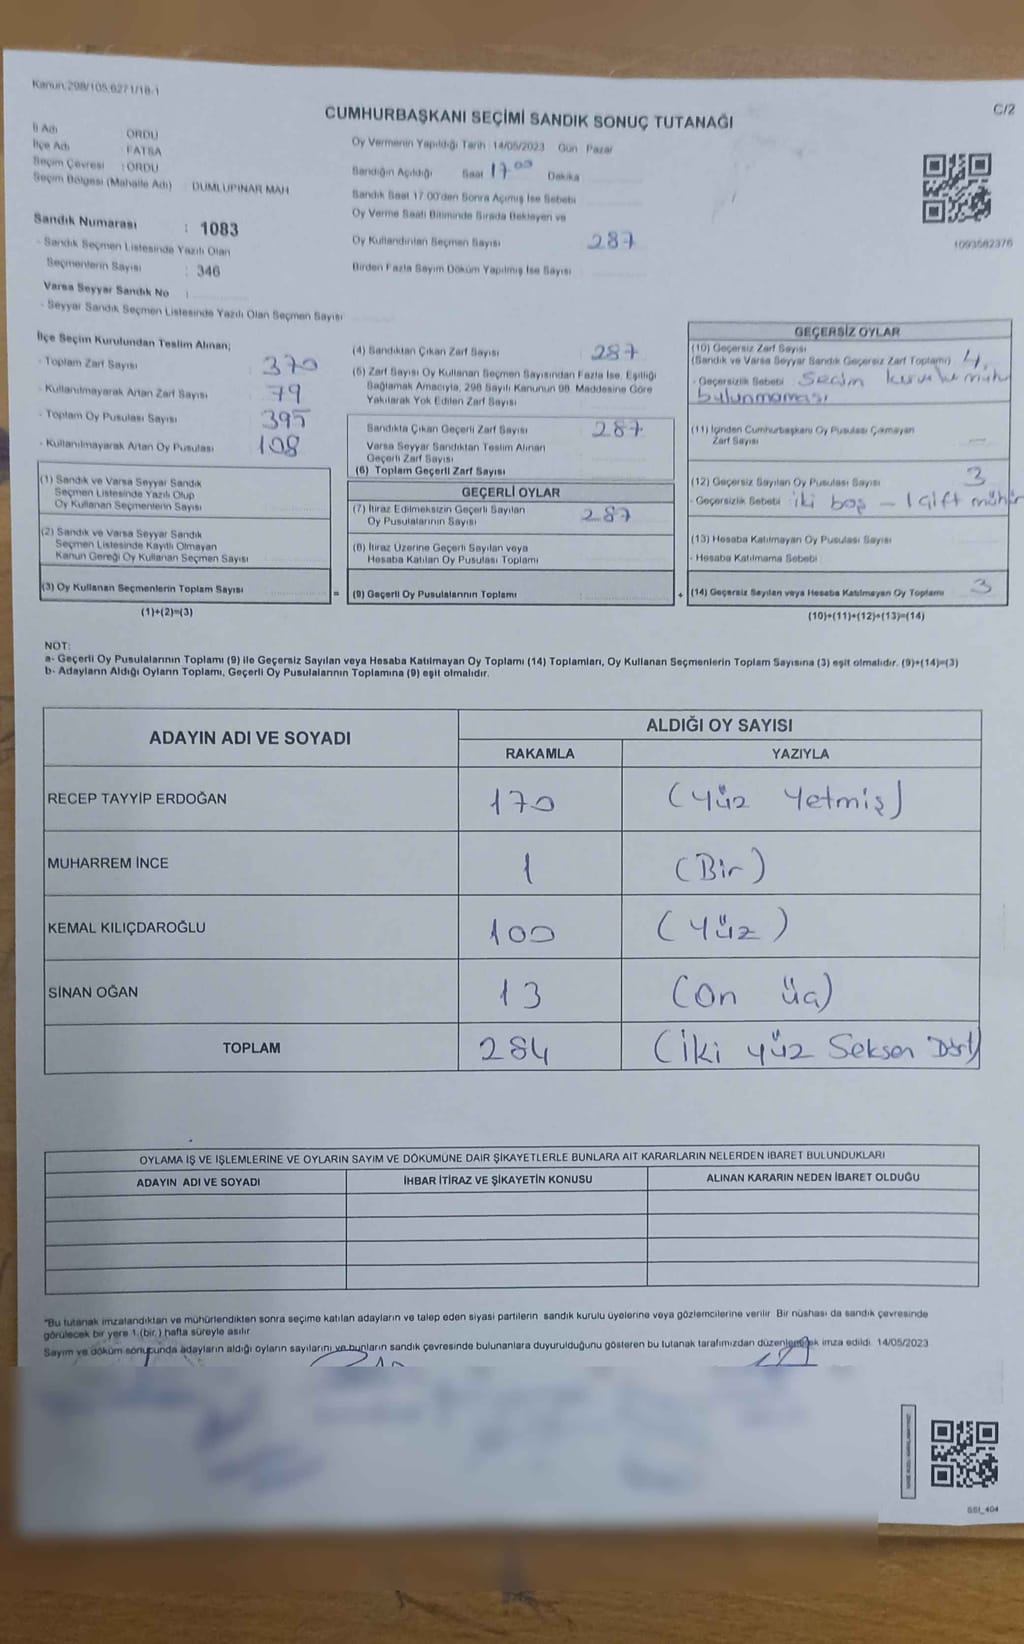 Kanun:298/105,6271/18-1
C/2
CUMHURBAŞKANI SEÇİMİ SANDIK SONUÇ TUTANAĞI
İl Adı : ORDU
İlçe Adı : FATSA
Seçim Çevresi : ORDU
Seçim Bölgesi (Mahalle Adı) : DUMLUPINAR MAH
Sandık Numarası : 1083
- Sandık Seçmen Listesinde Yazılı Olan
Seçmenlerin Sayısı : 346
Varsa Seyyar Sandık No :
- Seyyar Sandık Seçmen Listesinde Yazılı Olan Seçmen Sayısı
Oy Vermenin Yapıldığı Tarih : 14/05/2023 Gün : Pazar
Sandığın Açıldığı Saat 17 00 Dakika
Sandık Saat 17.00'den Sonra Açımış İse Sebebi
Oy Verme Saati Bitiminde Sırada Bekleyen ve
Oy Kullandırılan Seçmen Sayısı 287
Birden Fazla Sayım Döküm Yapılmış İse Sayısı
1093582376
İlçe Seçim Kurulundan Teslim Alınan;
- Toplam Zarf Sayısı 370
- Kullanılmayarak Artan Zarf Sayısı 79
- Toplam Oy Pusulası Sayısı 395
- Kullanılmayarak Artan Oy Pusulası 108
(1) Sandık ve Varsa Seyyar Sandık
Seçmen Listesinde Yazılı Olup
Oy Kullanan Seçmenlerin Sayısı
(2) Sandık ve Varsa Seyyar Sandık
Seçmen Listesinde Kayıtlı Olmayan
Kanun Gereği Oy Kullanan Seçmen Sayısı
(3) Oy Kullanan Seçmenlerin Toplam Sayısı
(1)+(2)=(3)
=
(4) Sandıktan Çıkan Zarf Sayısı 287
(5) Zarf Sayısı Oy Kullanan Seçmen Sayısından Fazla İse, Eşitliği
Sağlamak Amacıyla, 298 Sayılı Kanunun 98. Maddesine Göre
Yakılarak Yok Edilen Zarf Sayısı
Sandıkta Çıkan Geçerli Zarf Sayısı 287
Varsa Seyyar Sandıktan Teslim Alınan
Geçerli Zarf Sayısı
(6) Toplam Geçerli Zarf Sayısı
GEÇERLİ OYLAR
(7) İtiraz Edilmeksizin Geçerli Sayılan
Oy Pusulalarının Sayısı 287
(8) İtiraz Üzerine Geçerli Sayılan veya
Hesaba Katılan Oy Pusulası Toplamı
(9) Geçerli Oy Pusulalarının Toplamı
+
GEÇERSİZ OYLAR
(10) Geçersiz Zarf Sayısı
(Sandık ve Varsa Seyyar Sandık Geçersiz Zarf Toplamı) 4
- Geçersizlik Sebebi Seçim kurulu mührü
bulunmaması
(11) İçinden Cumhurbaşkanı Oy Pusulası Çıkmayan
Zarf Sayısı —
(12) Geçersiz Sayılan Oy Pusulası Sayısı 3
- Geçersizlik Sebebi iki boş - 1 çift mühür
(13) Hesaba Katılmayan Oy Pusulası Sayısı
- Hesaba Katılmama Sebebi
(14) Geçersiz Sayılan veya Hesaba Katılmayan Oy Toplamı 3
(10)+(11)+(12)+(13)=(14)
NOT:
a- Geçerli Oy Pusulalarının Toplamı (9) ile Geçersiz Sayılan veya Hesaba Katılmayan Oy Toplamı (14) Toplamları, Oy Kullanan Seçmenlerin Toplam Sayısına (3) eşit olmalıdır. (9)+(14)=(3)
b- Adayların Aldığı Oyların Toplamı, Geçerli Oy Pusulalarının Toplamına (9) eşit olmalıdır.
ADAYIN ADI VE SOYADI
ALDIĞI OY SAYISI
RAKAMLA YAZIYLA
RECEP TAYYİP ERDOĞAN 170 (Yüz Yetmiş)
MUHARREM İNCE 1 (Bir)
KEMAL KILIÇDAROĞLU 100 (Yüz)
SİNAN OĞAN 13 (On üç)
TOPLAM 284 (İki yüz Seksen Dört)
OYLAMA İŞ VE İŞLEMLERİNE VE OYLARIN SAYIM VE DÖKÜMÜNE DAİR ŞİKAYETLERLE BUNLARA AİT KARARLARIN NELERDEN İBARET BULUNDUKLARI
ADAYIN ADI VE SOYADI İHBAR İTİRAZ VE ŞİKAYETİN KONUSU ALINAN KARARIN NEDEN İBARET OLDUĞU
"Bu tutanak imzalandıktan ve mühürlendikten sonra seçime katılan adayların ve talep eden siyasi partilerin sandık kurulu üyelerine veya gözlemcilerine verilir. Bir nüshası da sandık çevresinde
görülecek bir yere 1 (bir.) hafta süreyle asılır
Sayım ve döküm sonucunda adayların aldığı oyların sayılarını ve bunların sandık çevresinde bulunanlara duyurulduğunu gösteren bu tutanak tarafımızdan düzenlenerek imza edildi. 14/05/2023
SSI_404